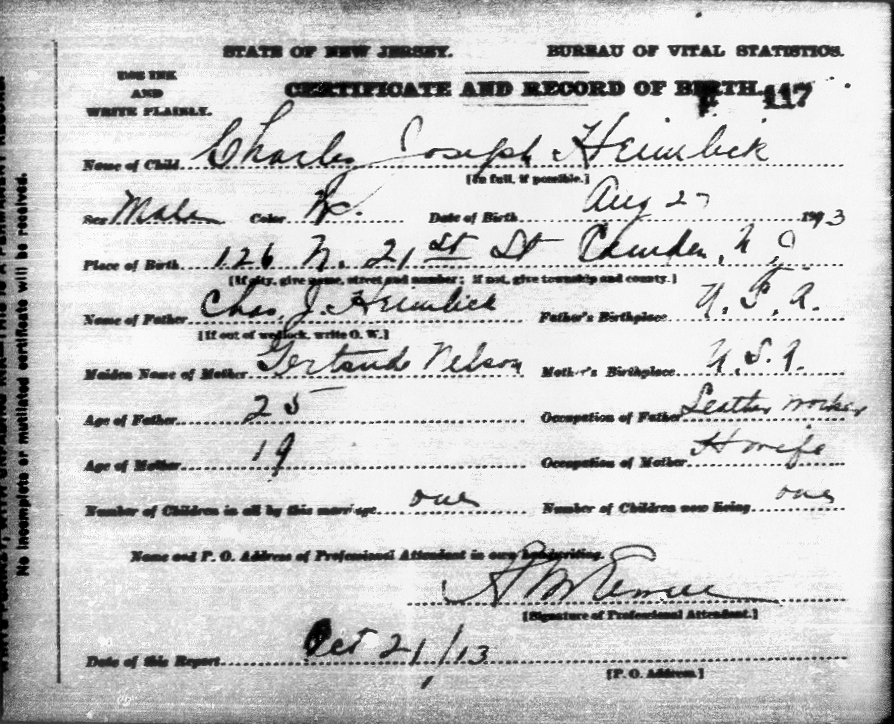 STATE OF NEW JERSEY. BUREAU OF VITAL STATISTICS.
USE INK
AND
WRITE PLAINLY.
CERTIFICATE AND RECORD OF BIRTH. 117
Name of Child Charles Joseph Heimlick
[In full, if possible.]
Sex Male Color W. Date of Birth Aug 27 1913
Place of Birth 126 N. 21st St Camden, N J
[If city, give name, street and number; if not, give township and county.]
Name of Father Chas. J. Heimlick Father's Birthplace U. S. A.
[If out of wedlock, write O. W.]
Maiden Name of Mother Gertrude Nelson Mother's Birthplace U. S. A.
Age of Father 25 Occupation of Father Leather worker
Age of Mother 19 Occupation of Mother H wife
Number of Children in all by this marriage one Number of Children now living one
Name and P. O. Address of Professional Attendant in own handwriting.
[Signature of Professional Attendant.]
Date of this Report Oct 21/13
[P. O. Address.]
No incomplete or mutilated certificate will be received.